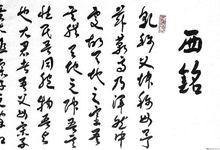 西銘
乾稱父坤稱母予
茲藐焉乃渾然中
處故天地之塞吾
其體天地之帥吾其
性民吾同胞物吾與
也大君者吾父母宗子